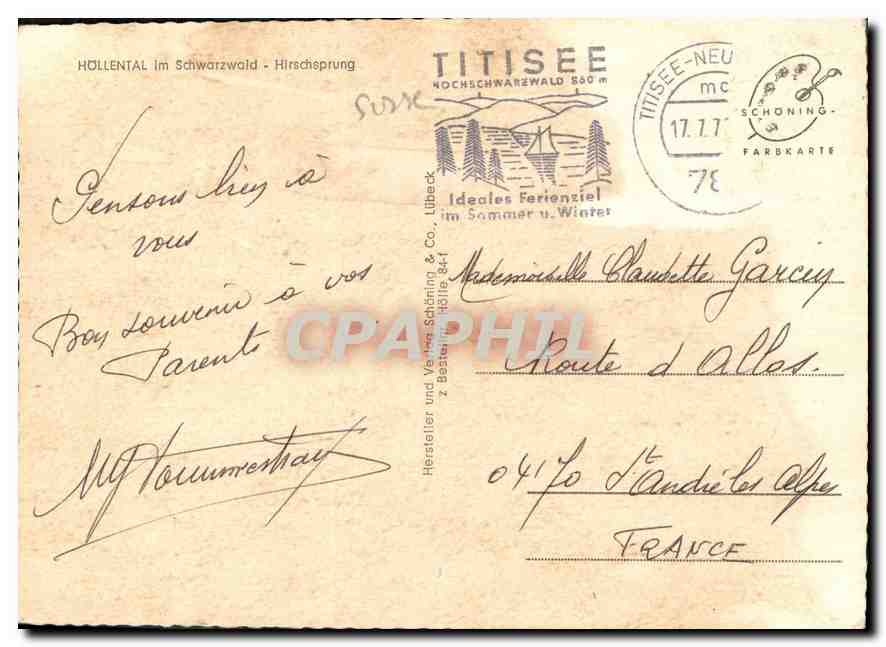 HÖLLENTAL im Schwarzwald - Hirschsprung
TITISEE
HOCHSCHWARZWALD 860 m
Ideales Ferienziel
im Sommer u. Winter
TITISEE-NEU
mc
17.7.7
78
SCHÖNING-
FARBKARTE
Pensons bien à
vous
Bon souvenir à vos
Parents
Hersteller und Verlag Schöning & Co., Lübeck
z Bestellnr. Hölle 84-f
Mademoiselle Claudette Garcin
Route d'Allos.
04170 St André les Alpes
FRANCE
CPAPHIL